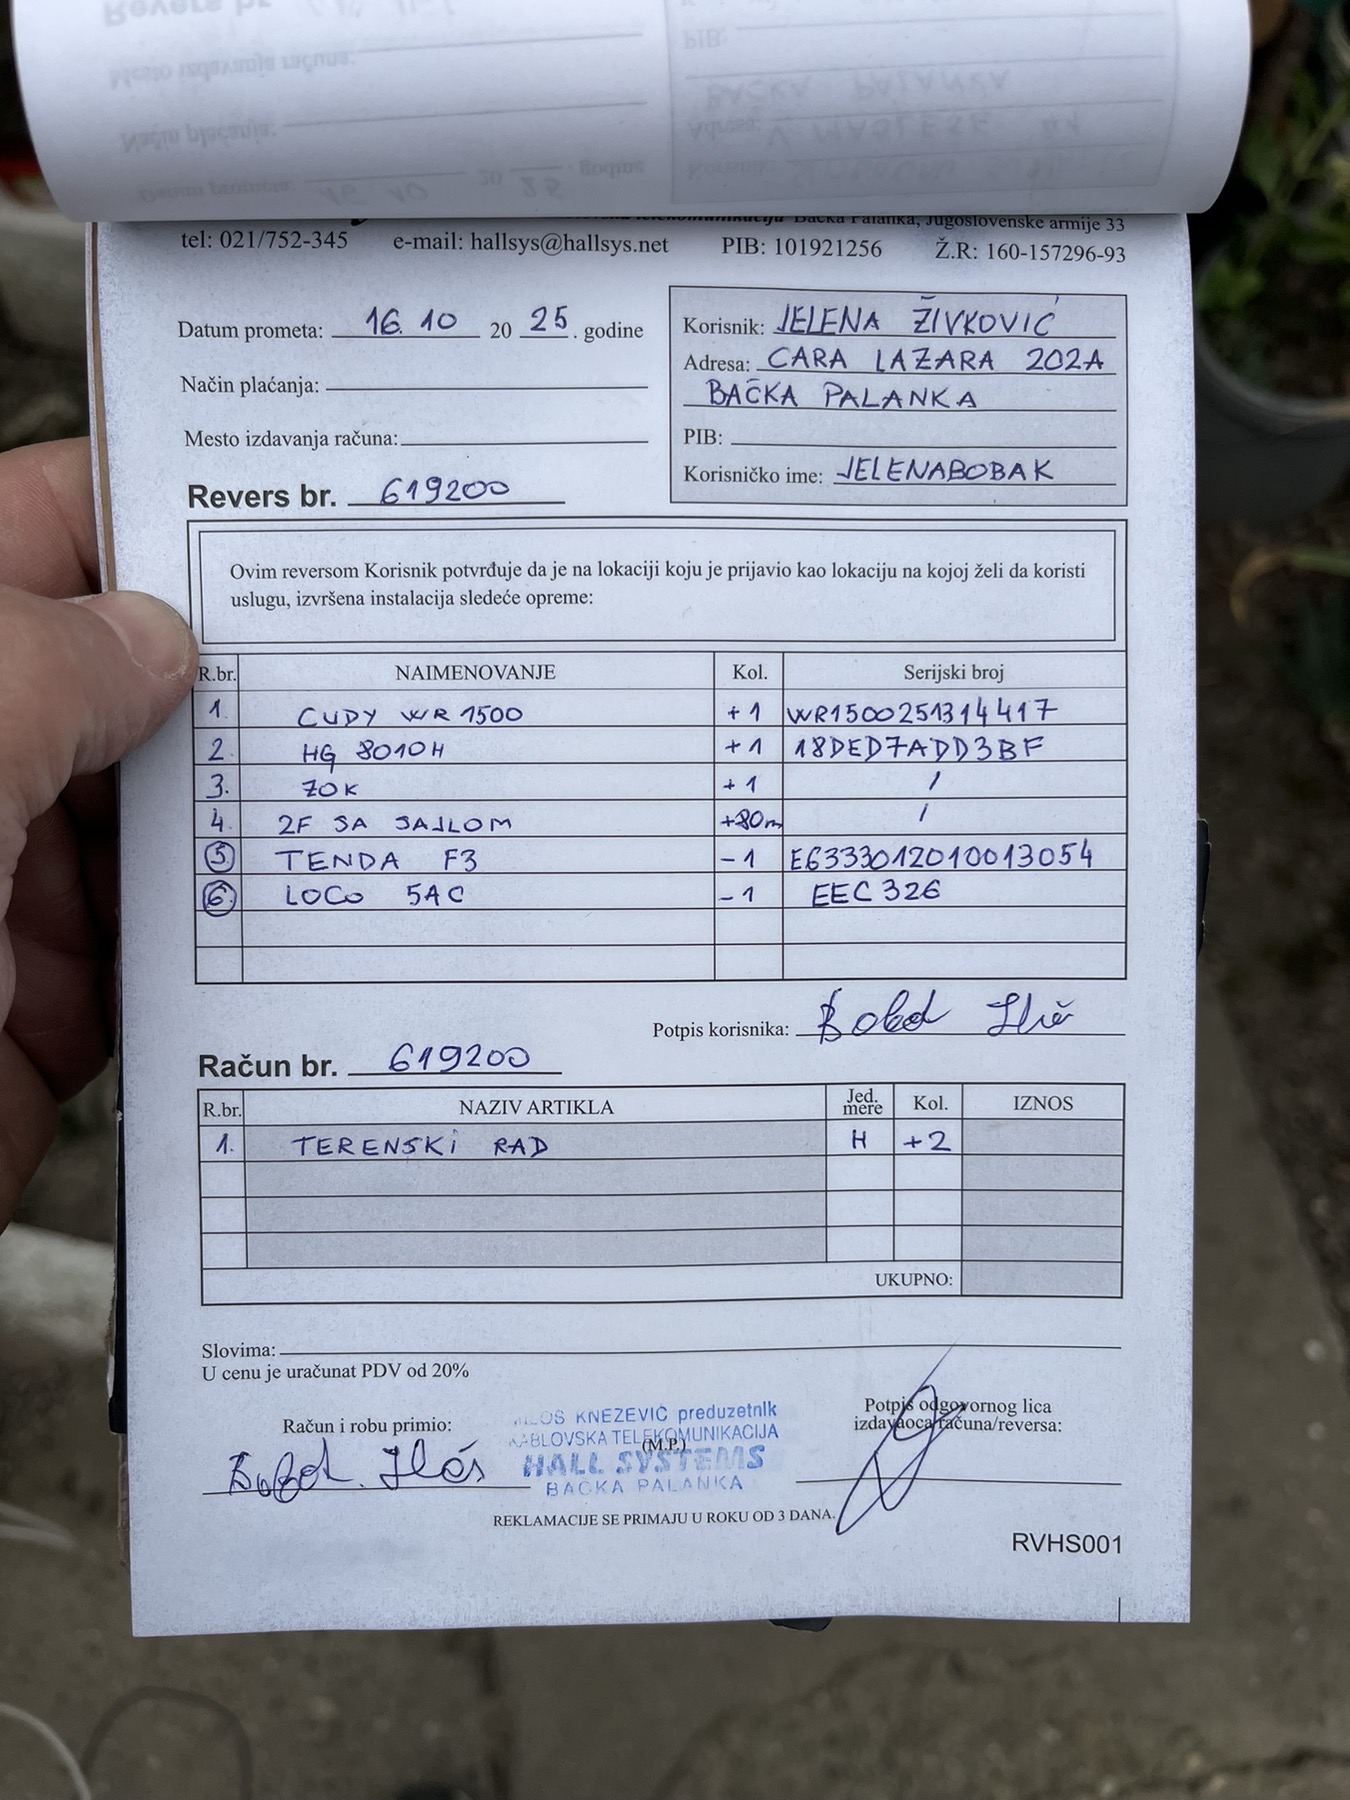 Bačka Palanka, Jugoslovenske armije 33
tel: 021/752-345 e-mail: hallsys@hallsys.net PIB: 101921256 Ž.R: 160-157296-93
Datum prometa: 16.10 20 25. godine
Način plaćanja:
Mesto izdavanja računa:
Revers br. 619200
Korisnik: JELENA ŽIVKOVIĆ
Adresa: CARA LAZARA 202A
BAČKA PALANKA
PIB:
Korisničko ime: JELENABOBAK
Ovim reversom Korisnik potvrđuje da je na lokaciji koju je prijavio kao lokaciju na kojoj želi da koristi
uslugu, izvršena instalacija sledeće opreme:
R.br. NAIMENOVANJE Kol. Serijski broj
1. CUDY WR 1500 +1 WR1500251314417
2. HG 8010H +1 18DED7ADD3BF
3. ZOK +1 /
4. 2F SA SAJLOM +80m /
5. TENDA F3 -1 E6333012010013054
6. LOCO 5AC -1 EEC326
Potpis korisnika:
Račun br. 619200
R.br. NAZIV ARTIKLA Jed. mere Kol. IZNOS
1. TERENSKI RAD H +2
UKUPNO:
Slovima:
U cenu je uračunat PDV od 20%
Račun i robu primio:
MILOŠ KNEŽEVIĆ preduzetnik
KABLOVSKA TELEKOMUNIKACIJA
(M.P.)
HALL SYSTEMS
BAČKA PALANKA
Potpis odgovornog lica
izdavaoca računa/reversa:
REKLAMACIJE SE PRIMAJU U ROKU OD 3 DANA.
RVHS001